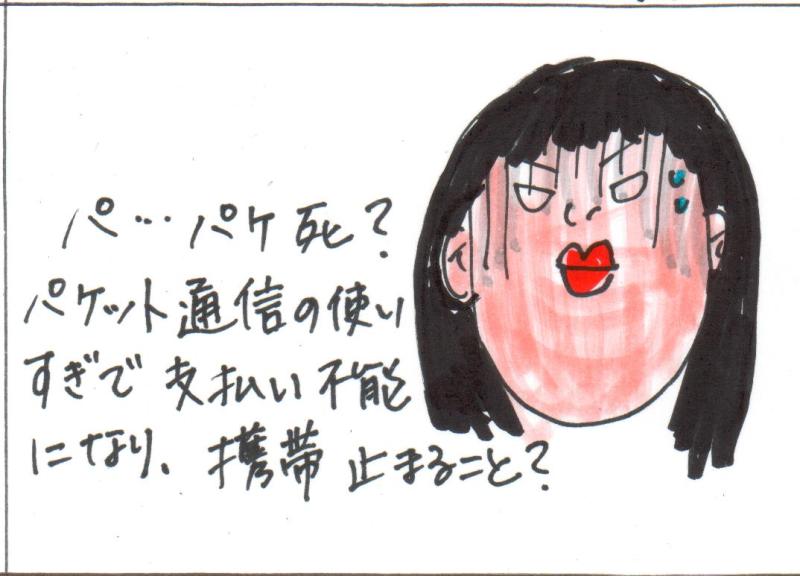 パ…パケ死?
パケット通信の使い
すぎで支払い不能
になり、携帯止まること?